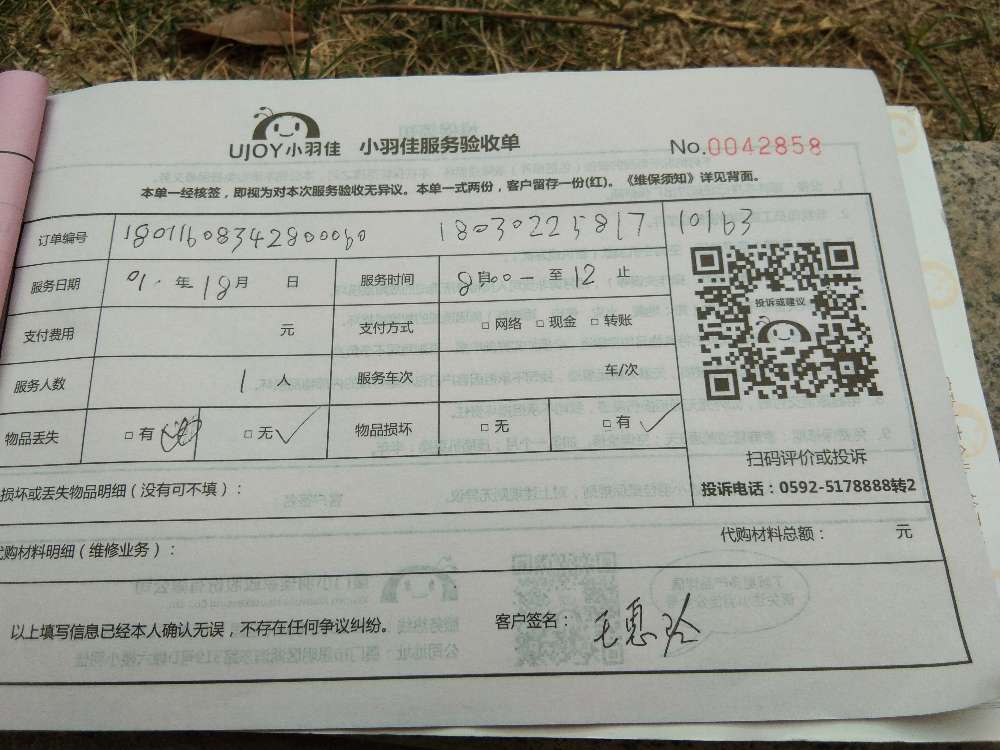 UJOY小羽佳 小羽佳服务验收单 No.0042858
本单一经核签，即视为对本次服务验收无异议。本单一式两份，客户留存一份(红)。《维保须知》详见背面。
订单编号 180116083428000060 18030225817 10163
服务日期 01.年18月 日 服务时间 8自00一至12止
支付费用 元 支付方式 □网络 □现金 □转账
服务人数 1人 服务车次 车/次
物品丢失 □有 □无✓ 物品损坏 □无 □有✓
投诉或建议
扫码评价或投诉
投诉电话：0592-5178888转2
损坏或丢失物品明细（没有可不填）：
代购材料总额： 元
代购材料明细（维修业务）：
以上填写信息已经本人确认无误，不存在任何争议纠纷。 客户签名：毛惠玲